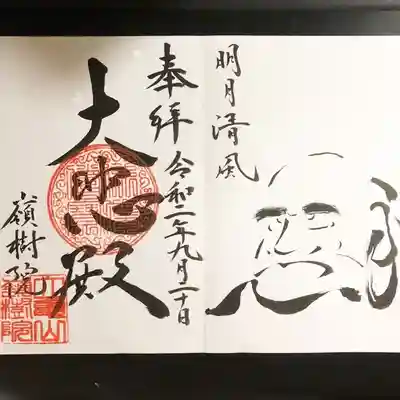 明月清風
奉拝
令和二年九月二十日
大悲殿
嶺樹院